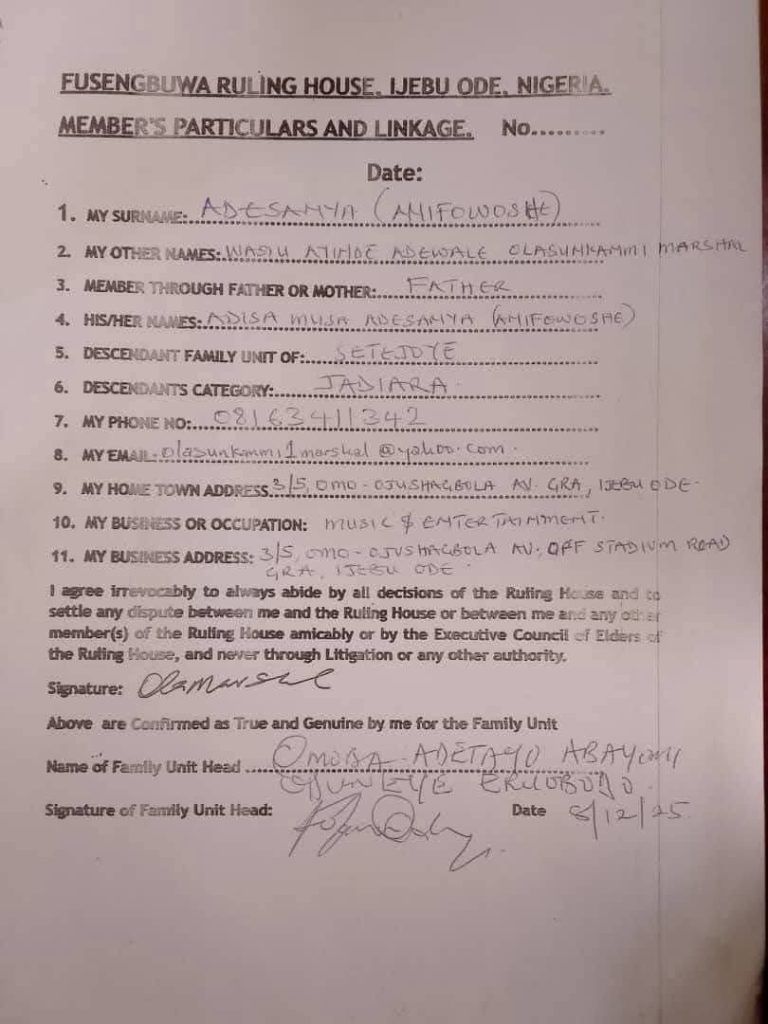 FUSENGBUWA RULING HOUSE, IJEBU ODE, NIGERIA.
MEMBER'S PARTICULARS AND LINKAGE. No..........
Date:
1. MY SURNAME: ADESANYA (ANIFOWOSHE)
2. MY OTHER NAMES: WASIU AYINDE ADEWALE OLASUNKANMI MARSHAL
3. MEMBER THROUGH FATHER OR MOTHER: FATHER
4. HIS/HER NAMES: ADISA MUSA ADESANYA (ANIFOWOSHE)
5. DESCENDANT FAMILY UNIT OF: SETEJOYE
6. DESCENDANTS CATEGORY: JADIARA
7. MY PHONE NO: 08163411342
8. MY EMAIL: olasunkanmi1marshal@yahoo.com.
9. MY HOME TOWN ADDRESS 3/5, OMO-OJUSHAGBOLA AV. GRA, IJEBU ODE.
10. MY BUSINESS OR OCCUPATION: MUSIC & ENTERTAINMENT.
11. MY BUSINESS ADDRESS: 3/5, OMO-OJUSHAGBOLA AV, OFF STADIUM ROAD
GRA, IJEBU ODE.
I agree irrevocably to always abide by all decisions of the Ruling House and to
settle any dispute between me and the Ruling House or between me and any other
member(s) of the Ruling House amicably or by the Executive Council of Elders of
the Ruling House, and never through Litigation or any other authority.
Signature: Olamarshal
Above are Confirmed as True and Genuine by me for the Family Unit
Name of Family Unit Head OMOBA ADETAYO ABAYOMI
Signature of Family Unit Head: Date 8/12/25